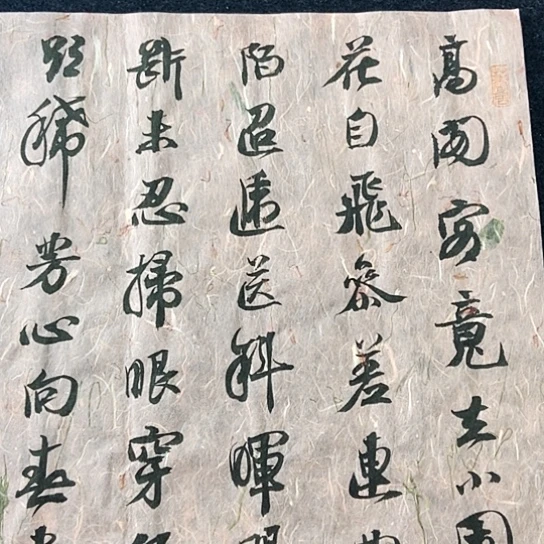 高閣客竟去小園
花自飛參差連曲
陌迢遞送斜暉
斷未忍掃眼穿
欲稀芳心向春